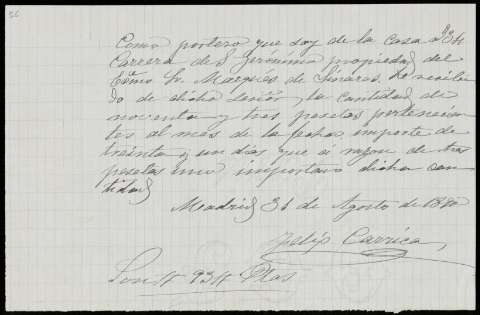 Como portero que soy de la casa nº 34
Carrera de Sn Gerónimo propiedad del
Exmo Sr. Marqués de Linares, he recibi-
do de dicho señor, la cantidad de
noventa y tres pesetas pertenecien-
tes al mes de la fecha importe de
treinta y un dias que á razon de tres
pesetas uno importan dicha can-
tidad
Madrid 31 de Agosto de 1880
Felix Carrica
Son # 93 # Ptas